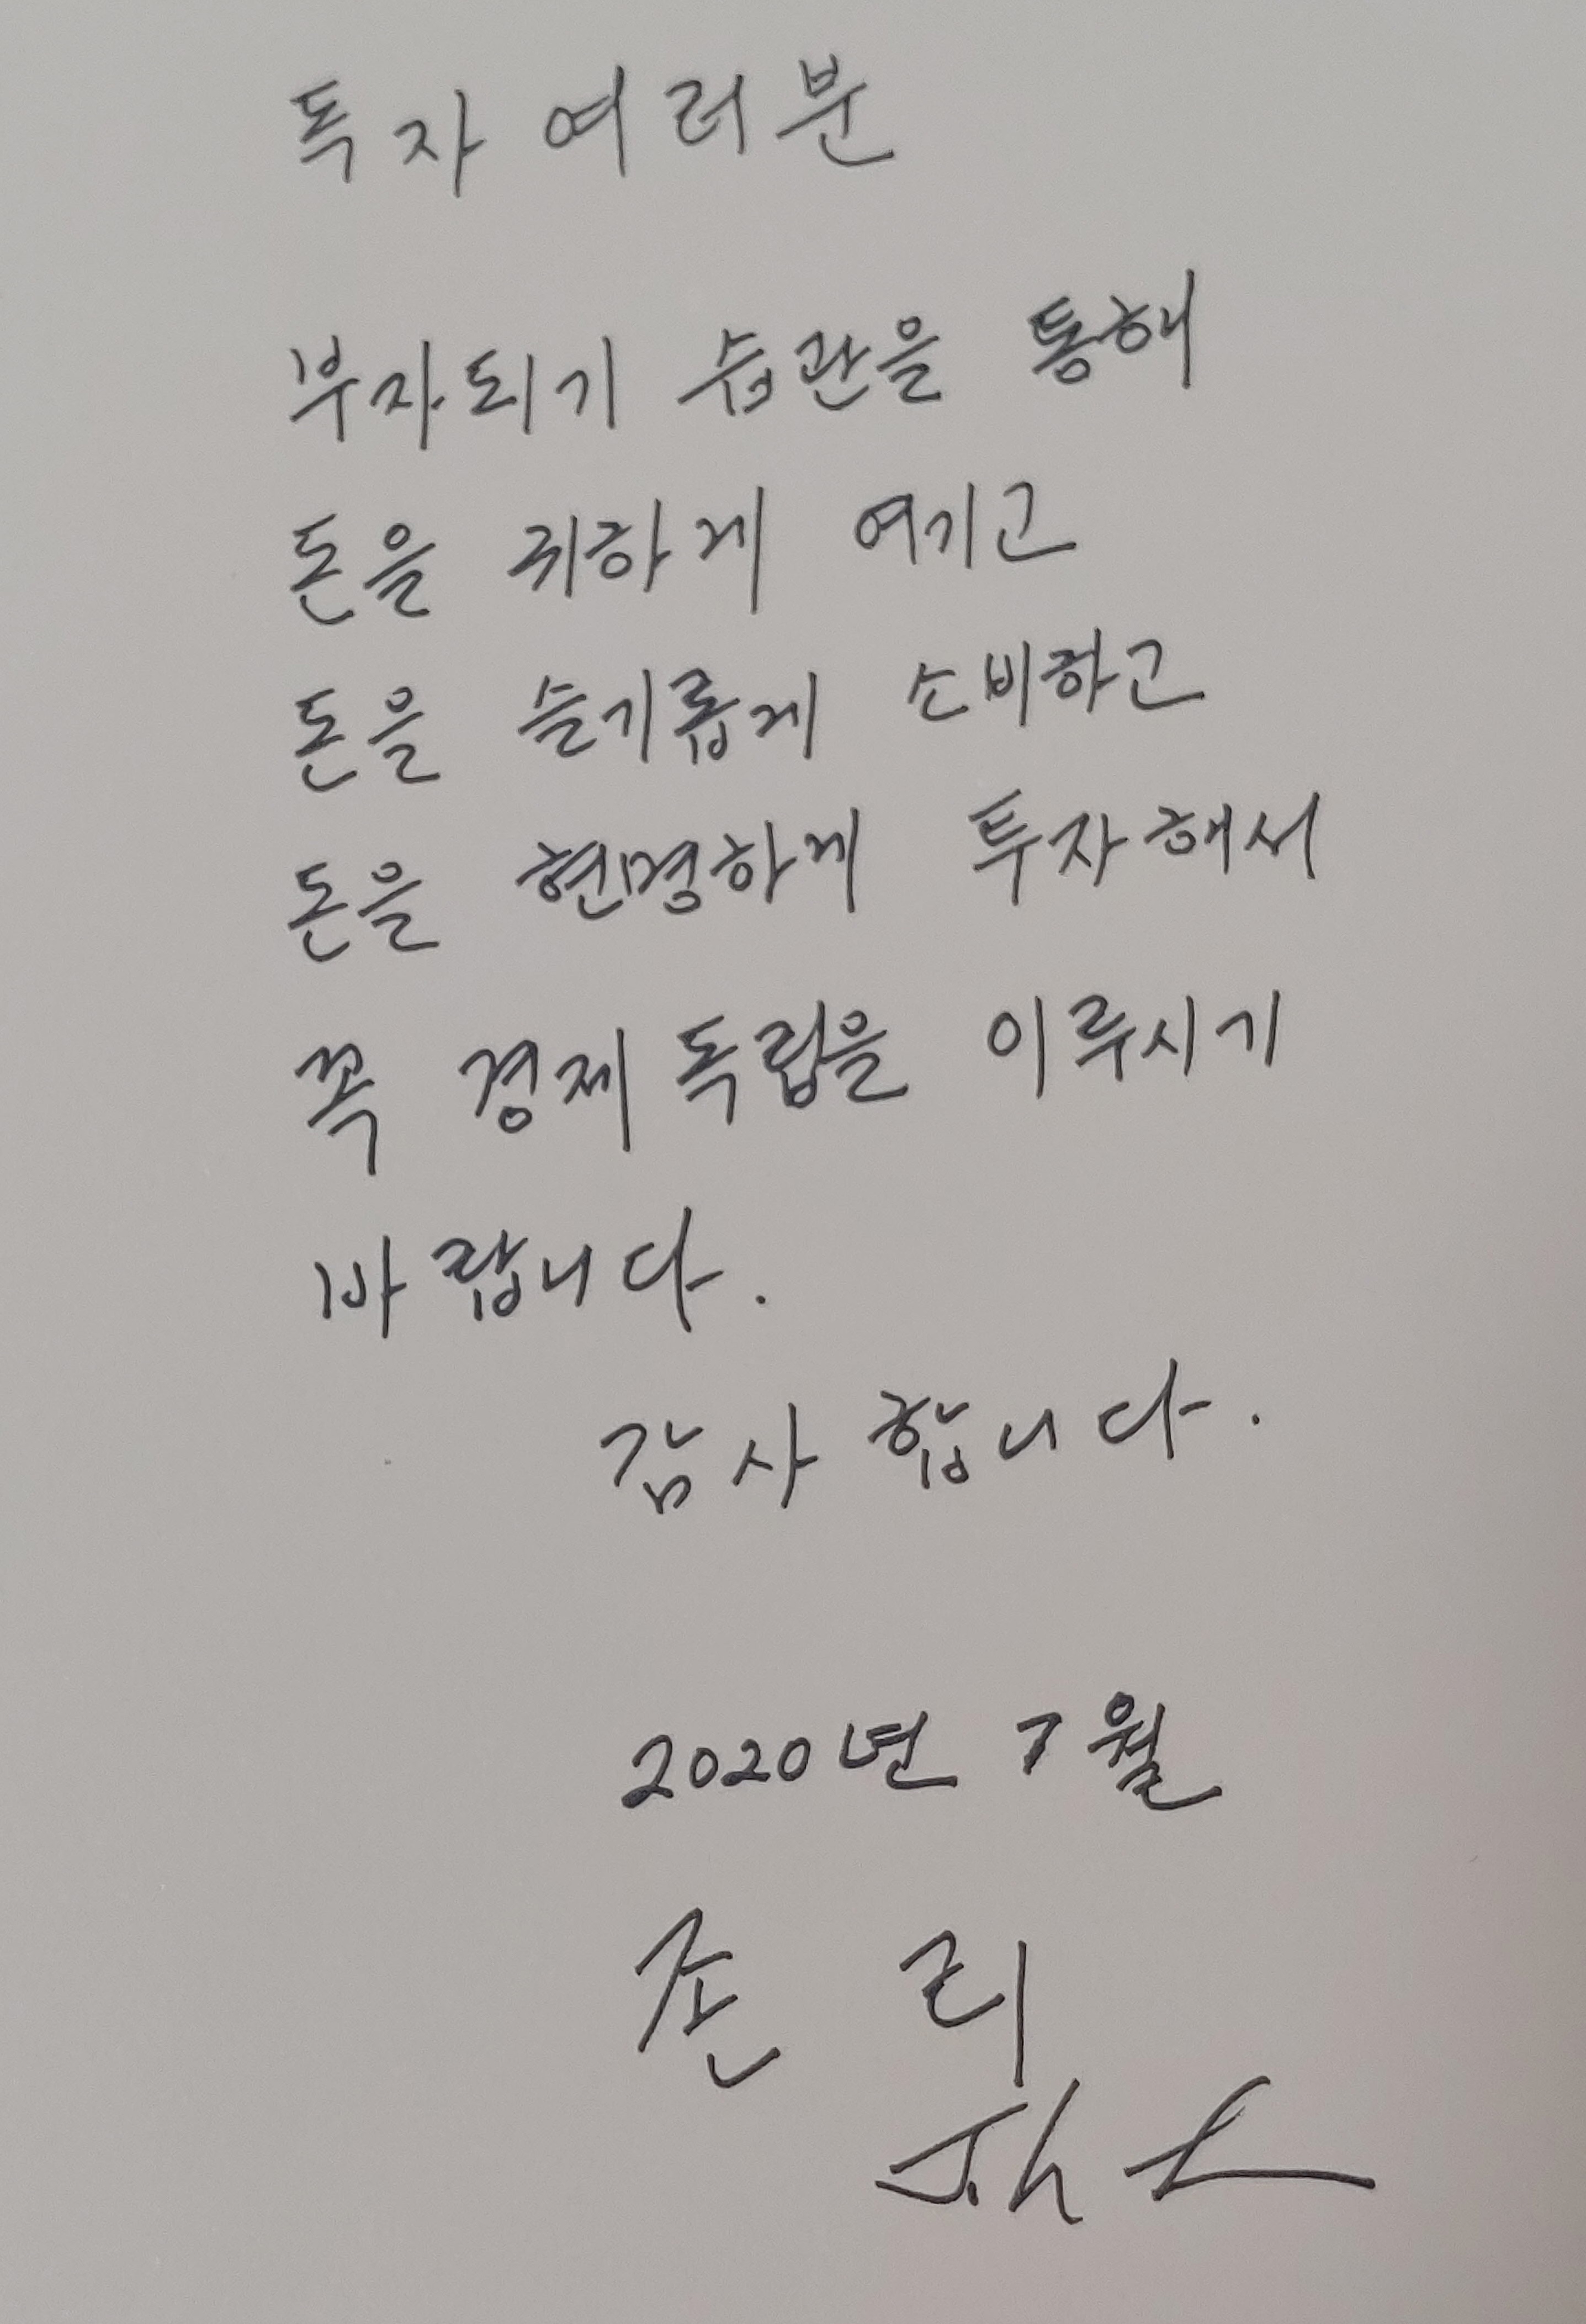 독자 여러분
부자되기 습관을 통해
돈을 귀하게 여기고
돈을 슬기롭게 소비하고
돈을 현명하게 투자해서
꼭 경제독립을 이루시기
바랍니다.
감사합니다.
2020년 7월
존 리